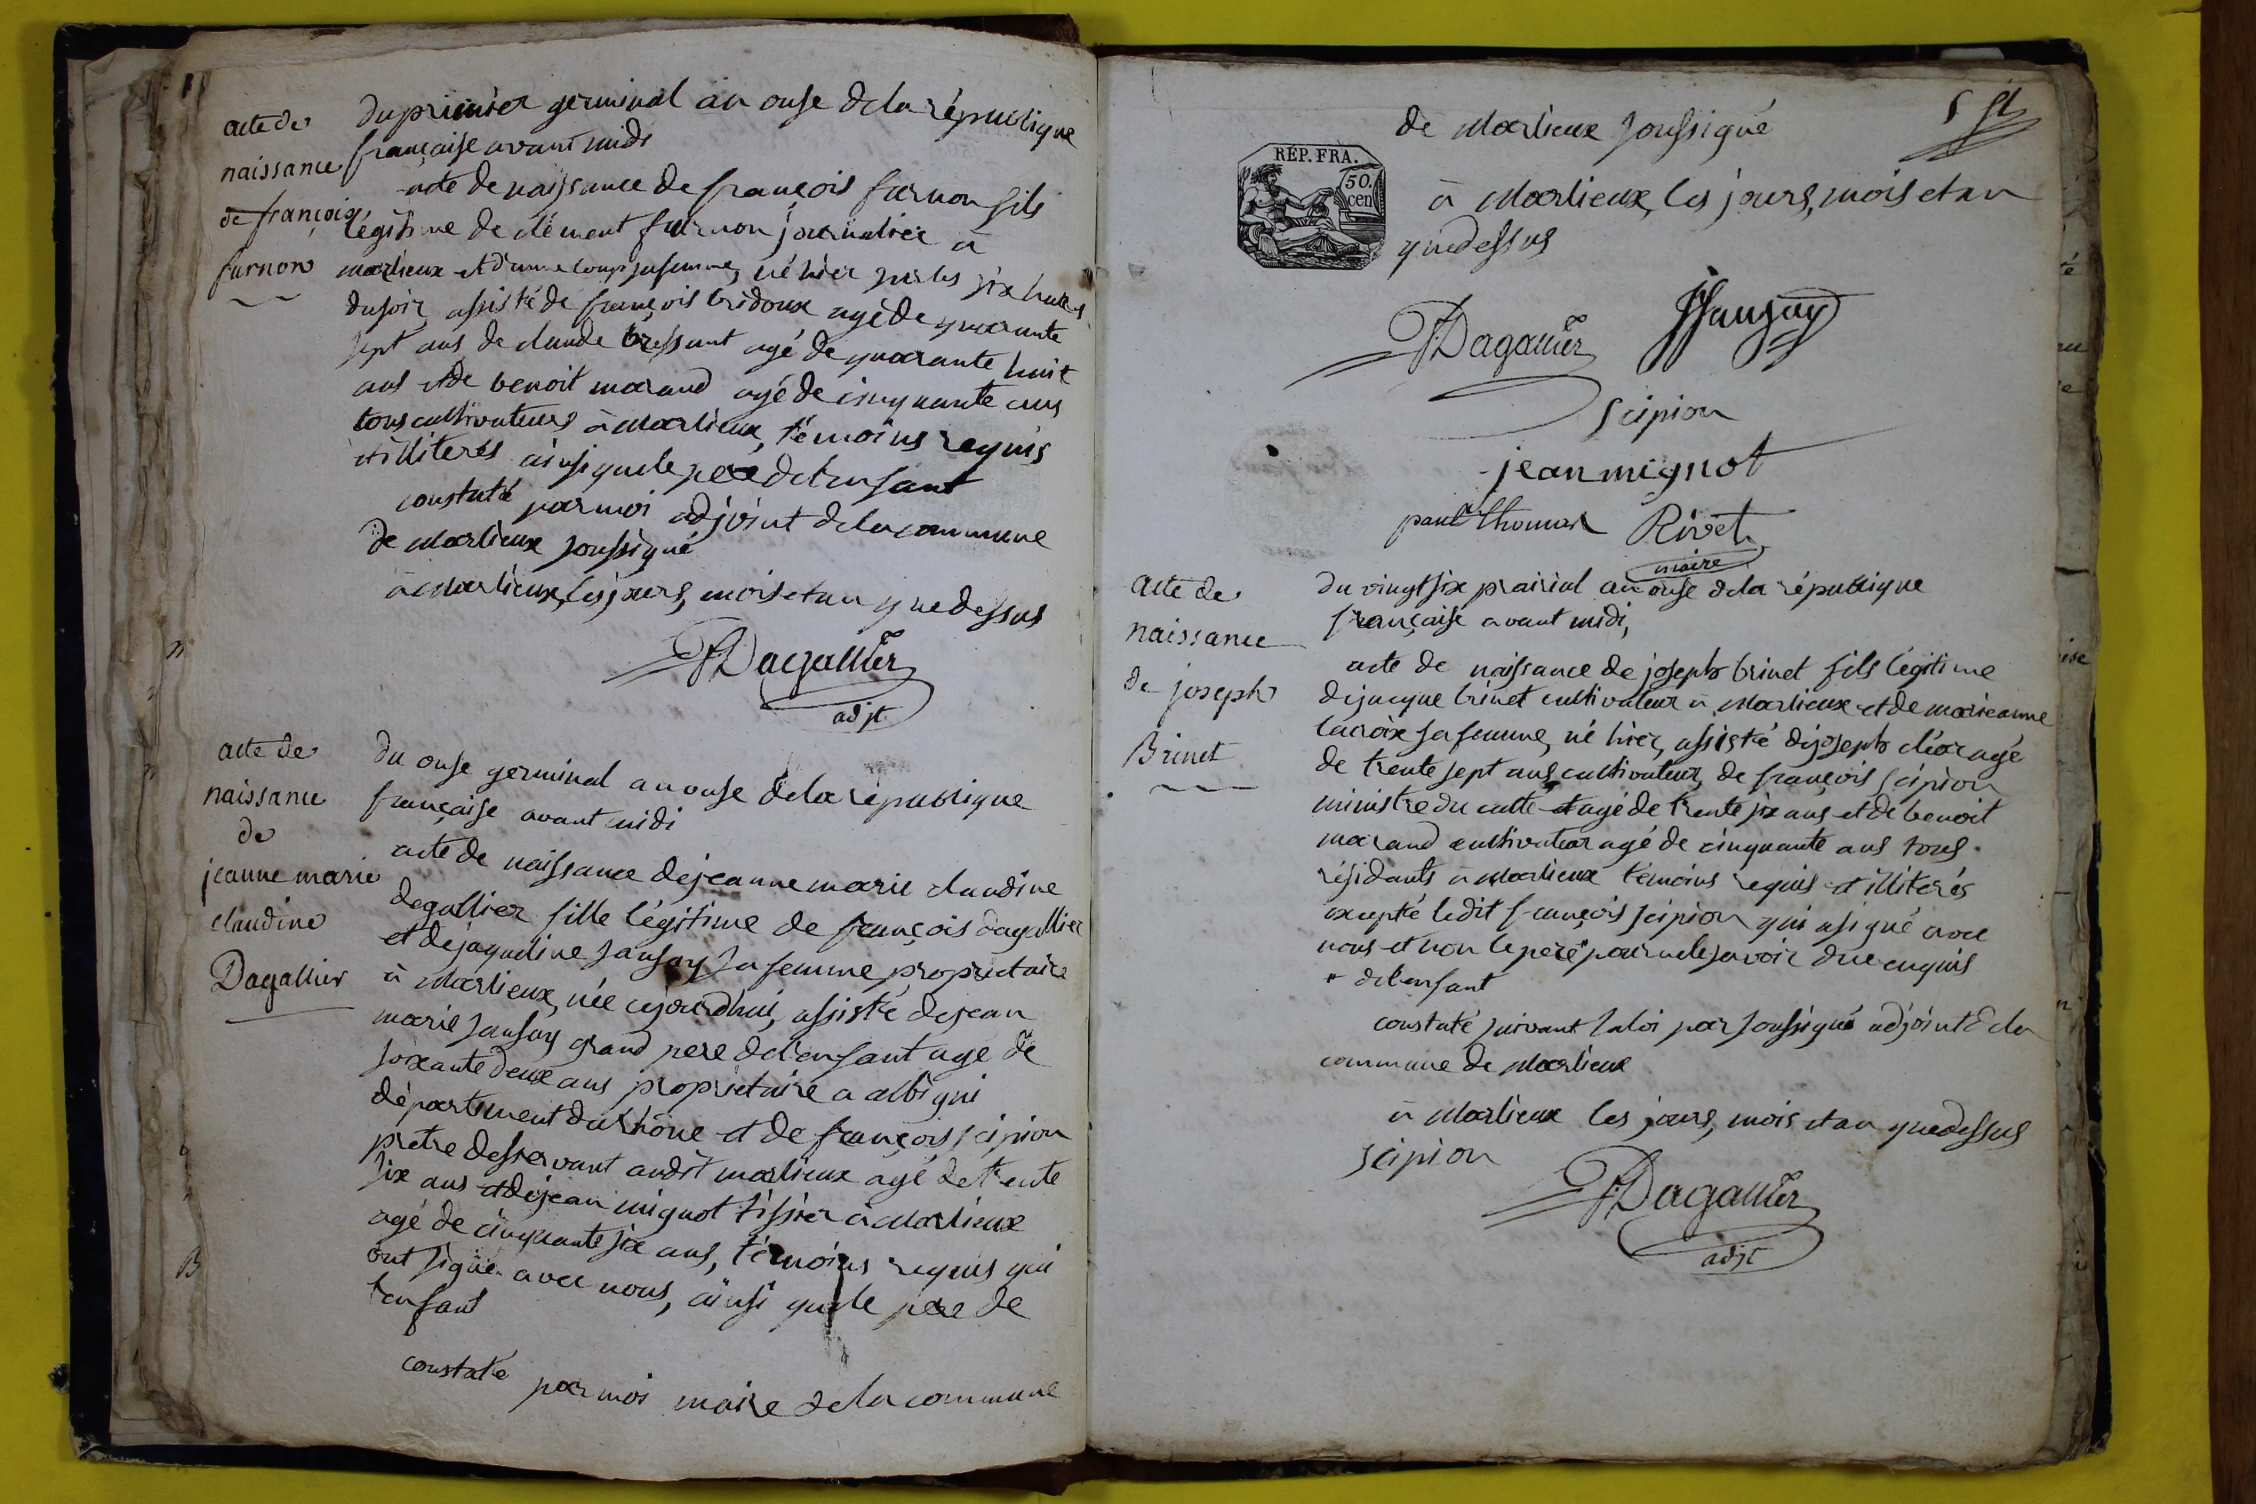 acte de
naissance
de françois
furnon
du primier germinal an onse de la république
française avant midi
acte de naissance de françois furnon fils
légitime de clément furnon journalier à
marlieux et d'anne loup sa femme, né hier sur les six heures
du soir, assisté de françois bridoux agé de quarante
sept ans de claude bressant agé de quarante huit
ans et de benoit marand agé de cinquante ans
tous cultivateurs à Marlieux, témoins requis
et illiterés ainsi que le pere de l'enfant
constaté par moi adjoint de la commune
de Marlieux soussigné
à Marlieux, les jours, mois et an que dessus
F. Dagallier
adjt.
acte de
naissance
de
jeanne marie
claudine
Dagallier
du onse germinal an onse de la république
française avant midi
acte de naissance de jeanne marie claudine
degallier fille légitime de françois dagallier
et de jaqueline sansay sa femme, propriétaire
à Marlieux, née cejourdhui, assisté de jean
marie sansay grand pere de l'enfant agé de
soixante deux ans propriétaire a albigni
département du rhône et de françois scipion
pretre desservant audit marlieux agé de trente
six ans et de jean mignot tissier à Marlieux
agé de cinquante six ans, témoins requis qui
ont signé avec nous, ainsi que le pere de
l'enfant
constaté par moi maire de la commune
de Marlieux soussigné
RÉP. FRA.
50.
cen
à Marlieux, les jours, mois et an
que dessus
F. Dagallier
JSansay
Scipion
jean mignot
paul thomas Rivet
maire
acte de
naissance
de joseph
Brinet
du vingt six prairial an onse de la république
française avant midi,
acte de naissance de joseph brinet fils légitime
de jacque brinet cultivateur à Marlieux et de marieanne
lacroix sa femme, né hier, assisté de joseph cléor agé
de trente sept ans cultivateur, de françois scipion
ministre du culte et agé de trente six ans et de benoit
marand cultivateur agé de cinquante ans tous
résidants à Marlieux témoins requis et illiterés
excepté ledit françois scipion qui a signé avec
nous et non le pere * pour ne le savoir de ce enquis
* de l'enfant
constaté suivant la loi par soussigné adjoint de la
commune de Marlieux
à Marlieux les jours, mois et an que dessus
scipion
F. Dagallier
adjt